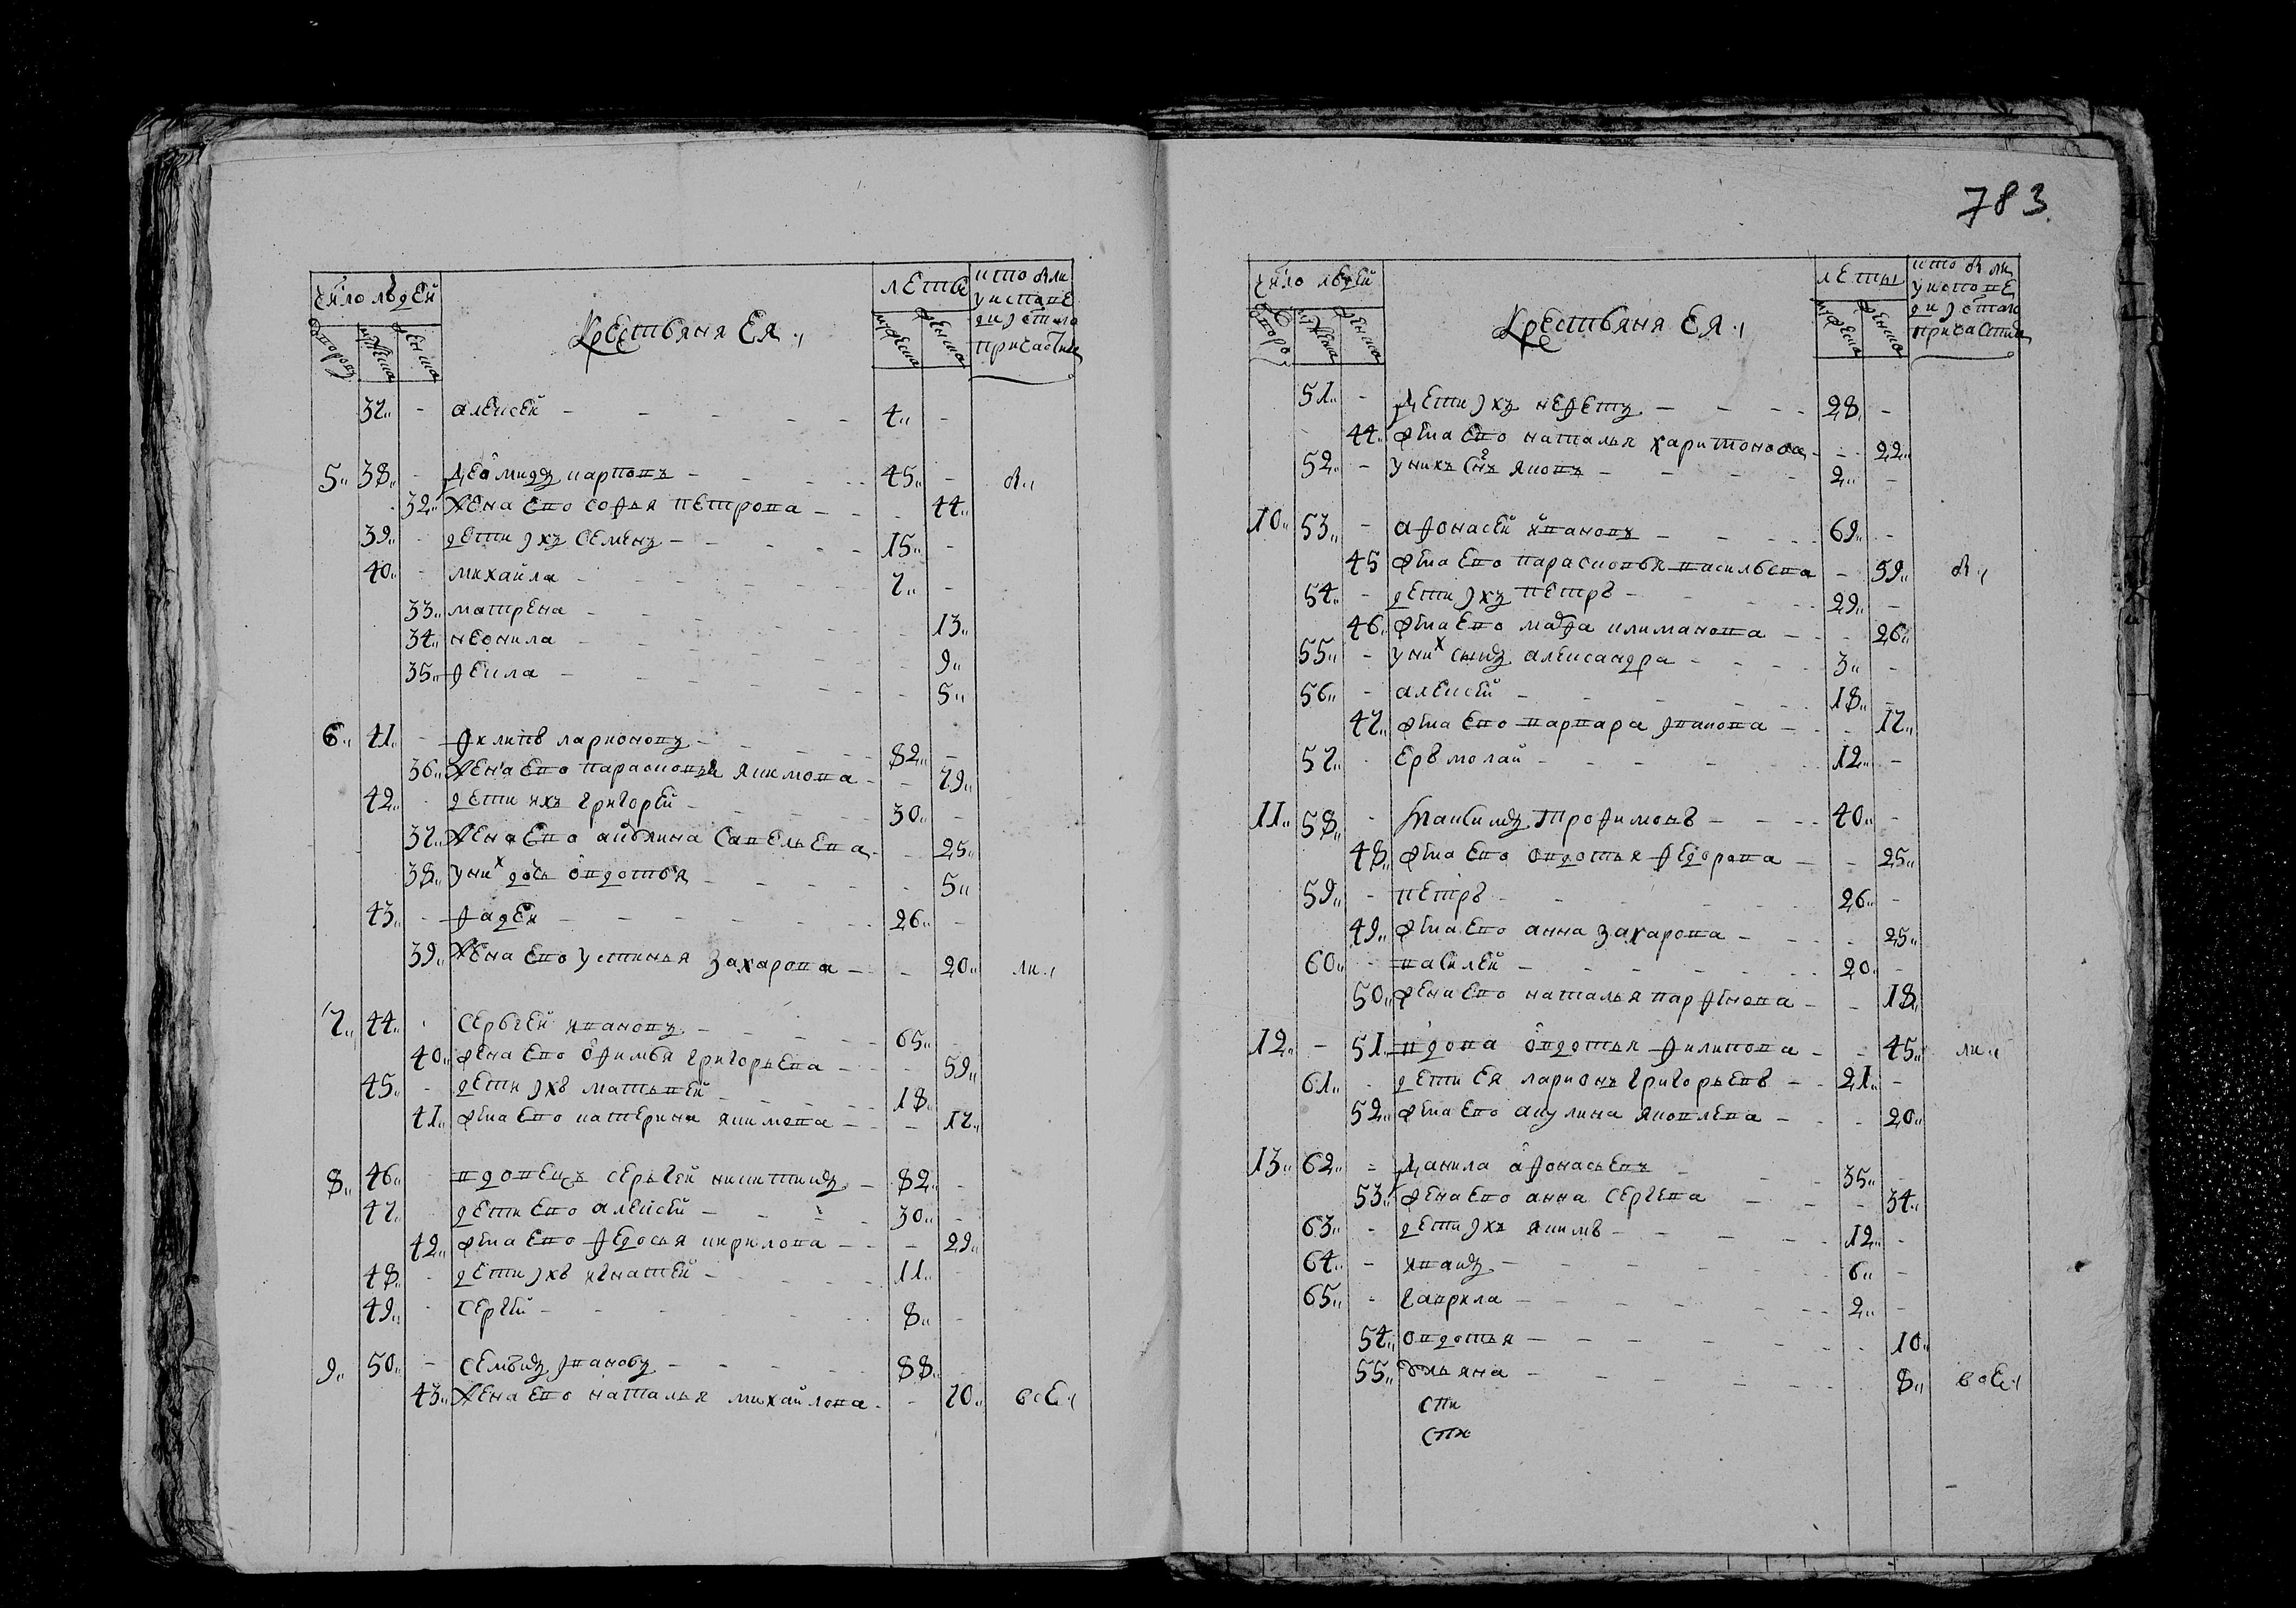 число людей
дворовъ
мужеска
женска
Крестьяня Ея
леты
мужеска
женска
37 - алексей - 4 -
5 38 - Деомидъ карповъ - 45 -
32 жена ево софья петрова - 44
39 - дети ихъ семенъ - 15 -
40 - михайла - 7 -
33 матрена - 13
34 неонила - 9
35 фекла - 5
6 41 - филипъ ларионовъ - 82 -
36 жена ево парасковья якимова - 79
42 - дети ихъ григорей - 30 -
37 жена ево акулина савельева - 25
38 у них дочь овдотья - 5
43 - фадей - 26 -
39 жена ево устинья захарова - 20
7 44 - сергей ивановъ - 65 -
40 жена ево офимья григорьева - 59
45 - дети ихъ матьвей - 18 -
41 жена ево катерина якимова - 17
8 46 - вдовецъ сергей никитинъ - 82 -
47 дети ево алексей - 30 -
42 жена ево федосья кирилова - 29
48 - дети ихъ игнатей - 11 -
49 - сергей - 8 -
9 50 - семенъ ивановъ - 88
43 жена ево наталья михайлова - 70 все
783
число людей
дворовъ
мужеска
женска
Крестьяня Ея
леты
мужеска
женска
51 - Дети ихъ нефетъ - 28 -
44 жена ево наталья харитонова - 22
52 - у нихъ снъ яковъ - 2 -
10 53 - афонасей ивановъ - 69 -
45 жена ево парасковья васильева - 59
54 - дети ихъ петръ - 29 -
46 жена ево марфа климанова - 26
55 - у них сынъ александра - 3 -
56 - алексей - 18 -
47 жена ево варвара иванова - 17
57 - ермолай - 12 -
11 58 - Максимъ трофимовъ - 40 -
48 жена ево овдотья федорова - 25
59 - петръ - 26 -
49 жена ево анна захарова - 25
60 - василей - 20 -
50 жена ево наталья парфенова - 18
12 - 51 вдова овдотья филипова - 45
61 - дети ея ларионъ григорьевъ - 21 -
52 жена ево акулина яковлева - 20
13 62 - Данила афонасьевъ - 35 -
53 жена ево анна сергева - 34
63 - дети ихъ якимъ - 12 -
64 - иванъ - 6 -
65 - гаврила - 2 -
54 овдотья - 10
55 ульяна - 8 все